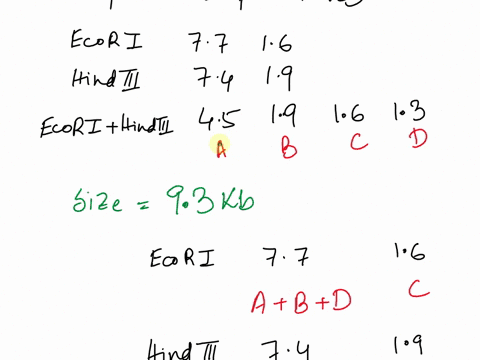 EcoRI 7.7 1.6
Hind III 7.4 1.9
EcoRI + Hind III 4.5 1.9 1.6 1.3
A B C D
Size = 9.3 Kb
EcoRI 7.7 1.6
A + B + D C
Hind III 7.4 1.9